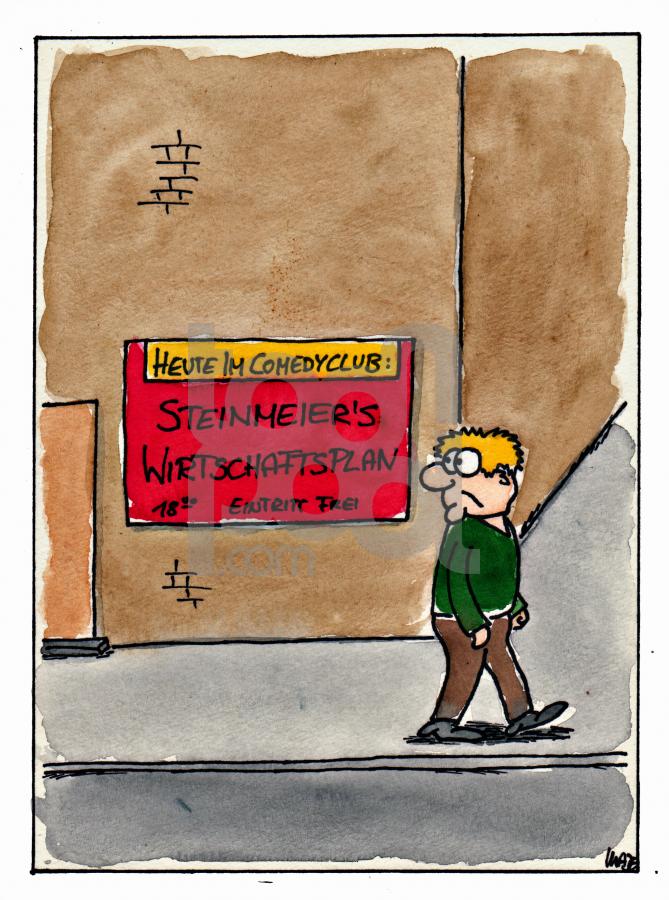 HEUTE IM COMEDYCLUB:
STEINMEIER'S
WIRTSCHAFTSPLAN
18³⁰ EINTRITT FREI
.com